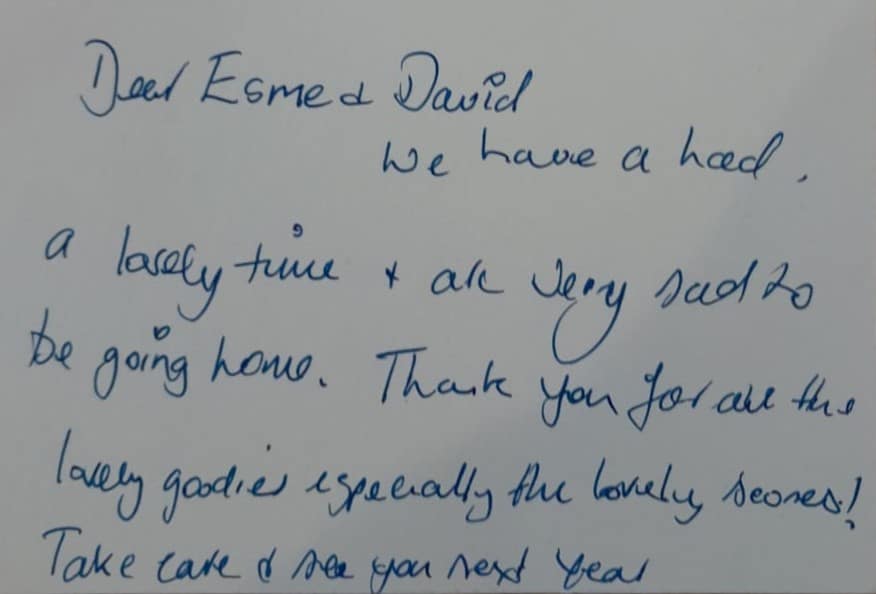 Dear Esme & David
We have a had.
a lovely time + are very sad to
be going home. Thank you for all the
lovely goodies especially the lovely scones!
Take care & see you next year